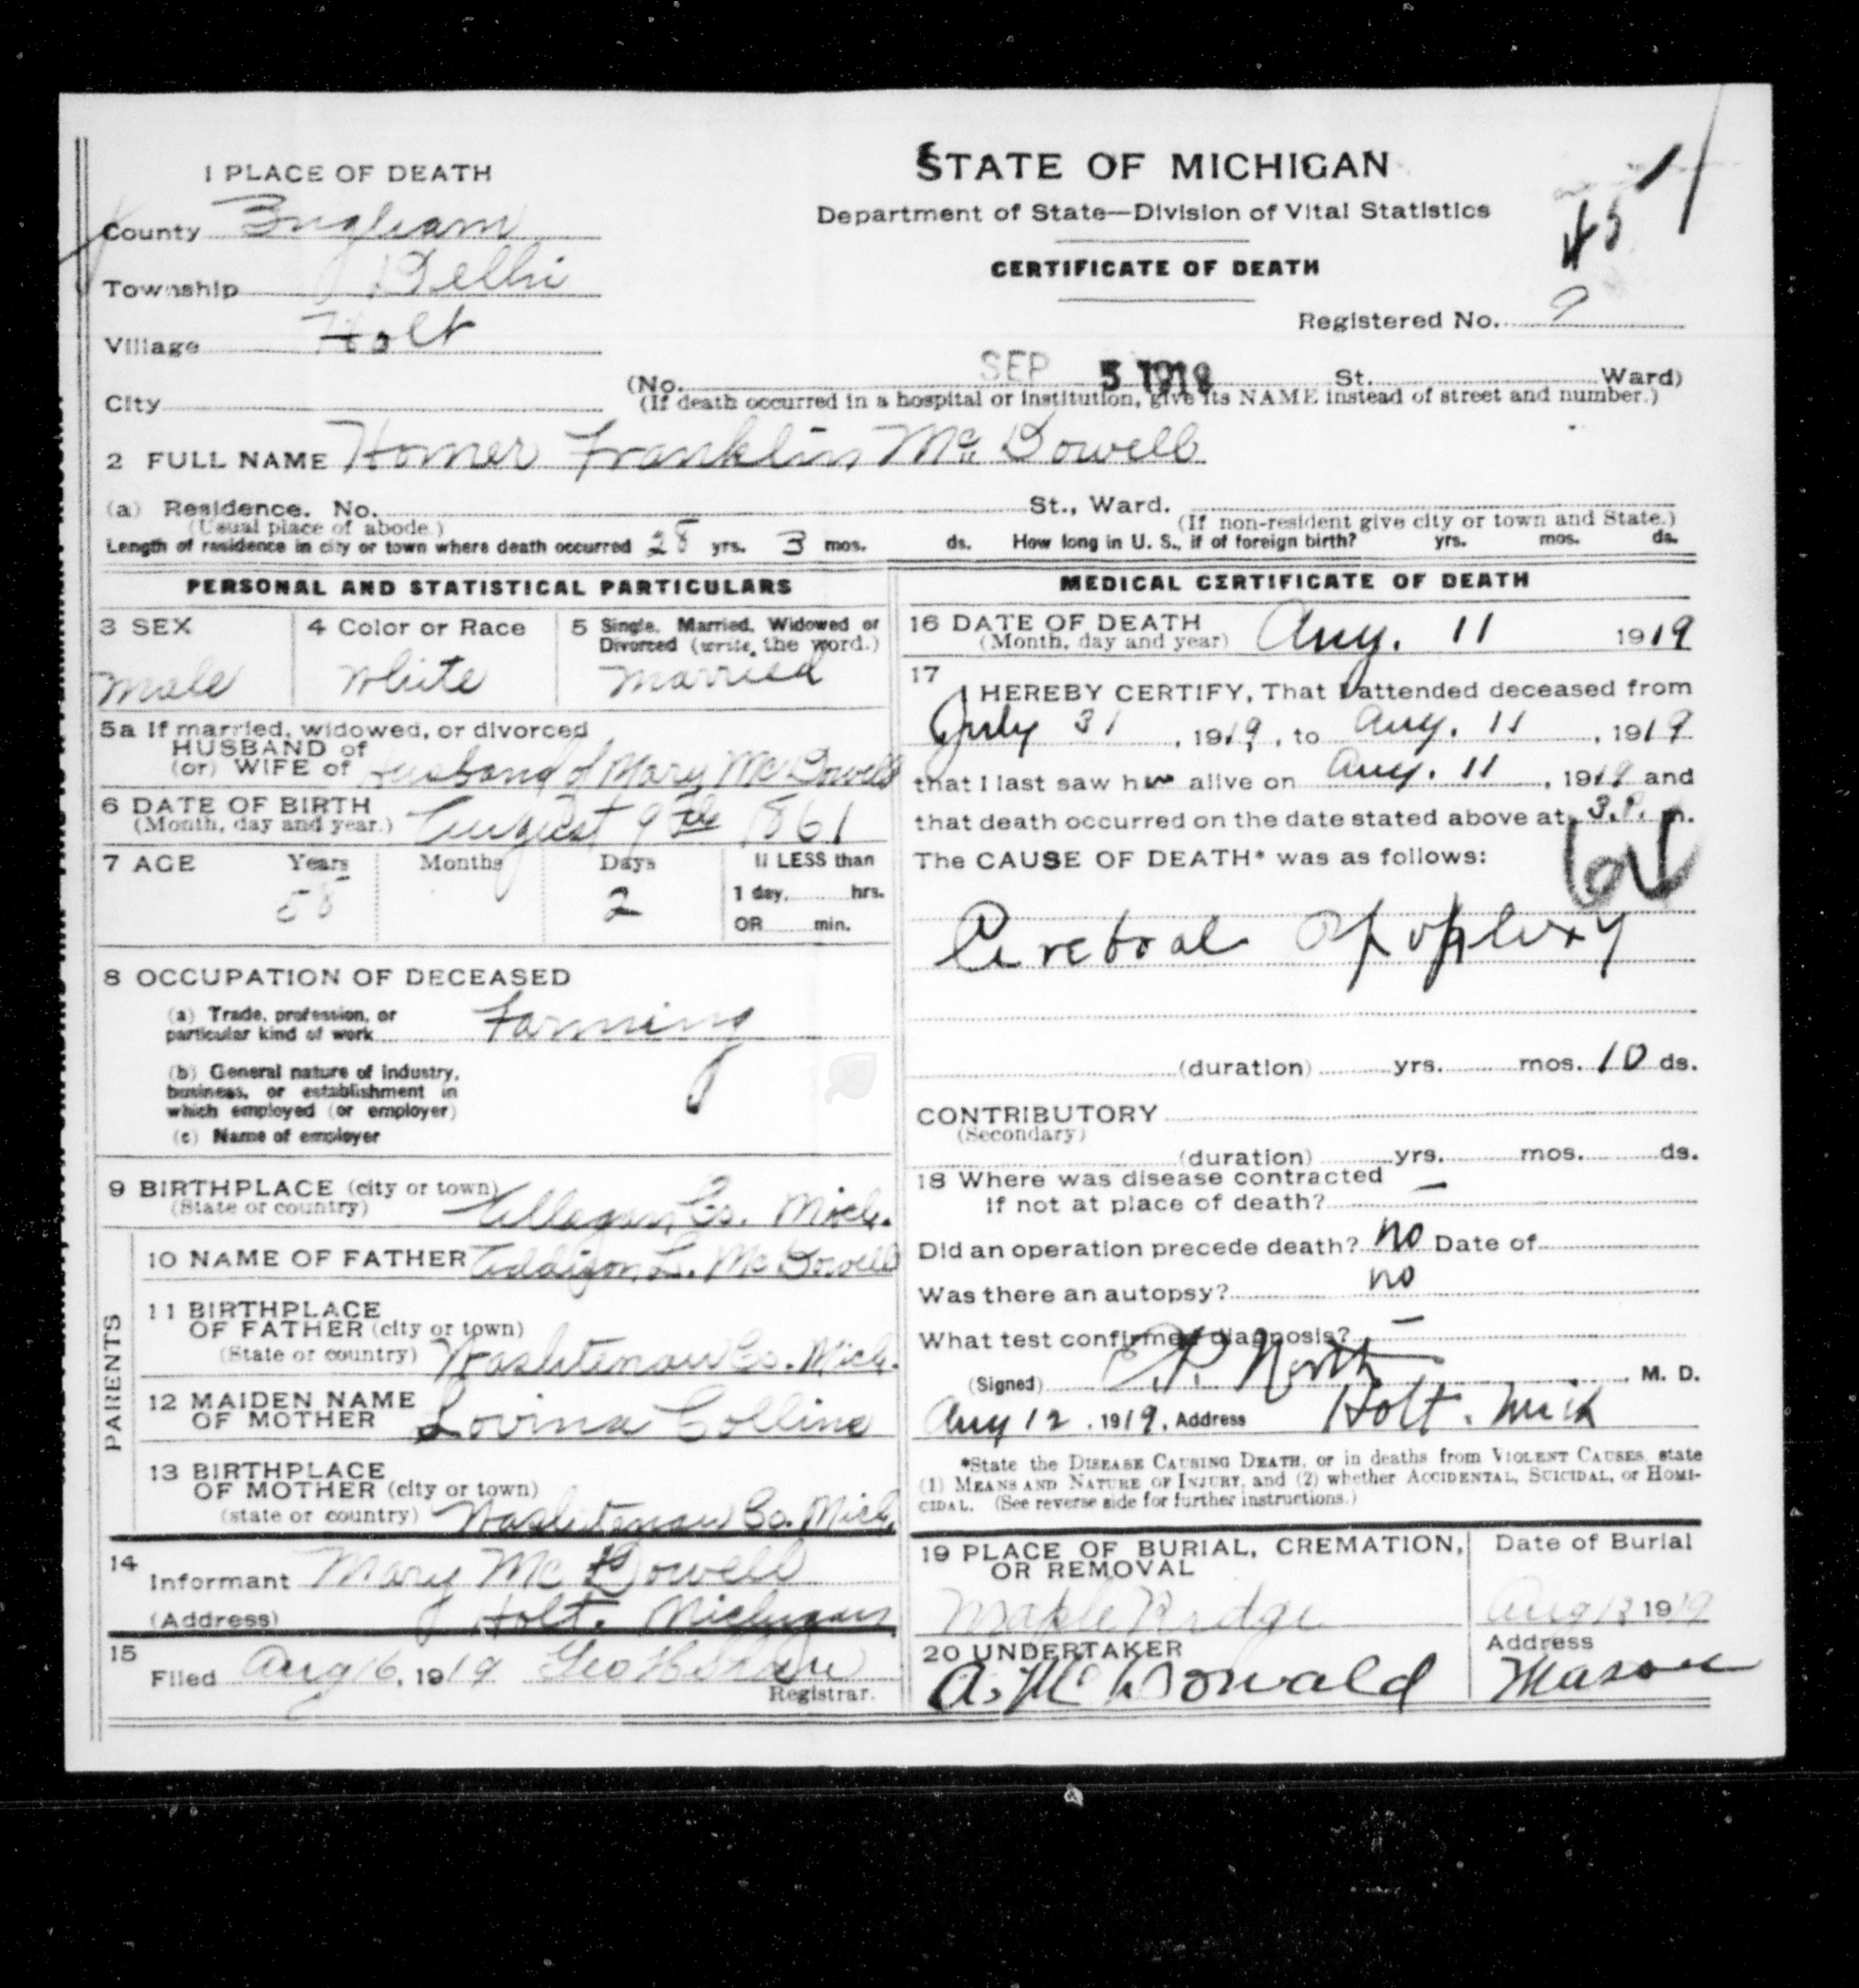 STATE OF MICHIGAN
Department of State—Division of Vital Statistics
CERTIFICATE OF DEATH
Registered No. 9
1 PLACE OF DEATH
County Ingham
Township Delhi
Village Holt
City
SEP 5 1919
(No. St. Ward)
(If death occurred in a hospital or institution, give its NAME instead of street and number.)
2 FULL NAME Homer Franklin McDowell
(a) Residence. No. St., Ward.
(Usual place of abode.) (If non-resident give city or town and State.)
Length of residence in city or town where death occurred 28 yrs. 3 mos. ds. How long in U. S., if of foreign birth? yrs. mos. ds.
PERSONAL AND STATISTICAL PARTICULARS
3 SEX 4 Color or Race 5 Single, Married, Widowed or
Divorced (write the word.)
Male White Married
5a If married, widowed, or divorced
HUSBAND of
(or) WIFE of Husband of Mary McDowell
6 DATE OF BIRTH
(Month, day and year.) August 9th 1861
7 AGE Years Months Days If LESS than
58 2 1 day, hrs.
OR min.
8 OCCUPATION OF DECEASED
(a) Trade, profession, or
particular kind of work Farming
(b) General nature of industry,
business, or establishment in
which employed (or employer)
(c) Name of employer
9 BIRTHPLACE (city or town)
(State or country) Allegan Co. Mich.
PARENTS
10 NAME OF FATHER Addison L. McDowell
11 BIRTHPLACE
OF FATHER (city or town)
(State or country) Washtenaw Co. Mich.
12 MAIDEN NAME
OF MOTHER Lovina Collins
13 BIRTHPLACE
OF MOTHER (city or town)
(state or country) Washtenaw Co. Mich.
14
Informant Mary McDowell
(Address) Holt. Michigan
15
Filed Aug 16, 1919 Geo
Registrar.
MEDICAL CERTIFICATE OF DEATH
16 DATE OF DEATH
(Month, day and year) Aug. 11 1919
17
I HEREBY CERTIFY, That I attended deceased from
July 31, 1919, to Aug. 11, 1919
that I last saw him alive on Aug. 11, 1919 and
that death occurred on the date stated above at 3.P. m.
The CAUSE OF DEATH* was as follows:
Cerebral Apoplexy
(duration) yrs. mos. 10 ds.
CONTRIBUTORY
(Secondary)
(duration) yrs. mos. ds.
18 Where was disease contracted
if not at place of death? —
Did an operation precede death? no Date of
Was there an autopsy? no
What test confirmed diagnosis? —
(Signed) North M. D.
Aug 12, 1919, Address Holt. Mich
*State the DISEASE CAUSING DEATH, or in deaths from VIOLENT CAUSES, state
(1) MEANS AND NATURE OF INJURY, and (2) whether ACCIDENTAL, SUICIDAL, or HOMI-
CIDAL. (See reverse side for further instructions.)
19 PLACE OF BURIAL, CREMATION, Date of Burial
OR REMOVAL
Maple Ridge Aug 13 1919
20 UNDERTAKER Address
A. McDonald Mason